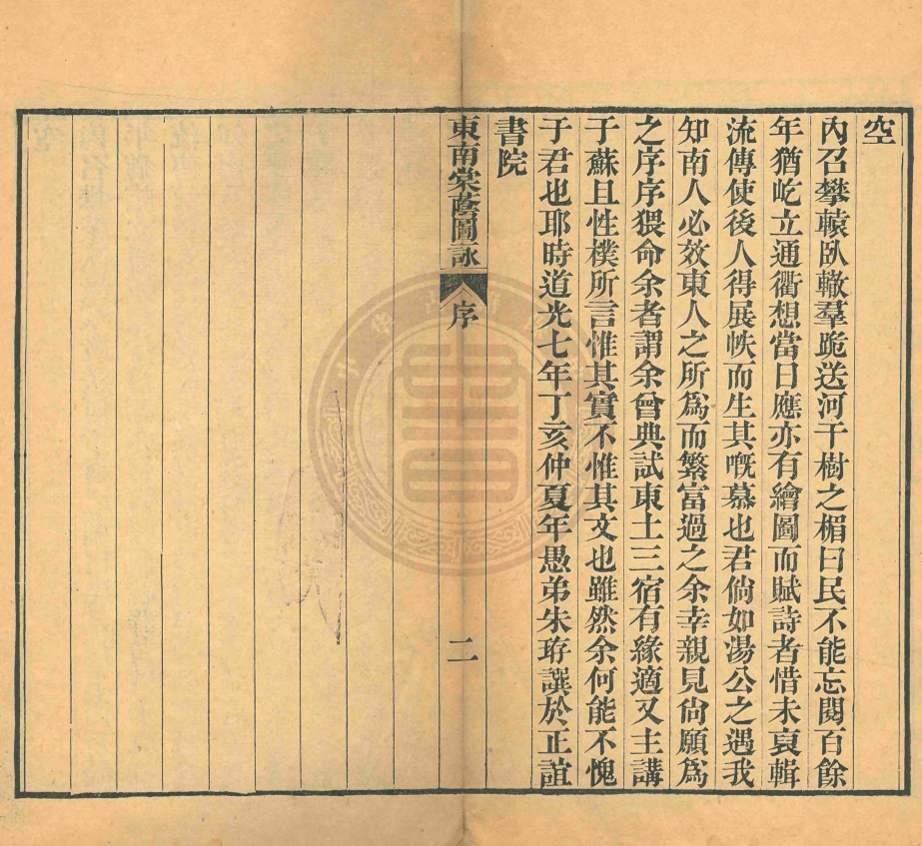 空
內召攀轅臥轍羣跪送河干樹之楣曰民不能忘閱百餘
年猶屹立通衢想當日應亦有繪圖而賦詩者惜未裒輯
流傳使後人得展帙而生其嘅慕也君倘如湯公之遇我
知南人必效東人之所爲而繁富過之余幸親見尙願爲
之序序猥命余者謂余曾典試東土三宿有緣適又主講
于蘇且性樸所言惟其實不惟其文也雖然余何能不愧
于君也耶時道光七年丁亥仲夏年愚弟朱珔譔於正誼
書院
東南棠蔭圖詠
序
二